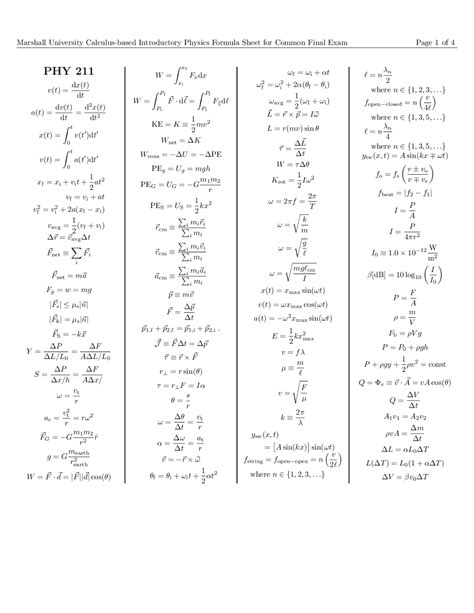 Marshall University Calculus-based Introductory Physics Formula Sheet for Common Final Exam Page 1 of 4
PHY 211
v(t) = dx(t)/dt
a(t) = dv(t)/dt = d²x(t)/dt²
x(t) = ∫₀ᵗ v(t′)dt′
v(t) = ∫₀ᵗ a(t′)dt′
x_f = x_i + v_i t + ½at²
v_f = v_i + at
v_f² = v_i² + 2a(x_f − x_i)
v_avg = ½(v_f + v_i)
Δr⃗ = v⃗_avg Δt
F⃗_net ≡ Σ_i F⃗_i
F⃗_net = ma⃗
F_g = w = mg
|F⃗_s| ≤ μ_s|n⃗|
|F⃗_k| = μ_k|n⃗|
F⃗_S = −kx⃗
Y = ΔP/(ΔL/L₀) = ΔF/(AΔL/L₀)
S = ΔP/(Δx/h) = ΔF/(AΔx/)
ω = v_t/r
a_c = v_t²/r = rω²
F⃗_G = −G m₁m₂/r² r̂
g = G m_earth/r²_earth
W = F⃗ · d⃗ = |F⃗||d⃗| cos(θ)
W = ∫_{x_i}^{x_f} F_x dx
W = ∫_{P_i}^{P_f} F⃗ · dℓ⃗ = ∫_{P_i}^{P_f} F_∥ dℓ
KE = K ≡ ½mv²
W_net = ΔK
W_cons = −ΔU = −ΔPE
PE_g = U_g = mgh
PE_G = U_G = −G m₁m₂/r
PE_S = U_S = ½kx²
r⃗_cm ≡ Σ_i m_i r⃗_i / Σ_i m_i
v⃗_cm ≡ Σ_i m_i v⃗_i / Σ_i m_i
a⃗_cm ≡ Σ_i m_i a⃗_i / Σ_i m_i
p⃗ ≡ mv⃗
F⃗ = Δp⃗/Δt
p⃗_{1,f} + p⃗_{2,f} = p⃗_{1,i} + p⃗_{2,i} .
J⃗ ≡ F⃗Δt = Δp⃗
τ⃗ ≡ r⃗ × F⃗
r_⊥ = r sin(θ)
τ = r_⊥F = Iα
θ = s/r
ω = Δθ/Δt = v_t/r
α = Δω/Δt = a_t/r
v⃗ = −r⃗ × ω⃗
θ_f = θ_i + ω_i t + ½αt²
ω_f = ω_i + αt
ω_f² = ω_i² + 2α(θ_f − θ_i)
ω_avg = ½(ω_f + ω_i)
L⃗ = r⃗ × p⃗ = Iω⃗
L = r(mv) sin θ
τ⃗ = ΔL⃗/Δt
W = τΔθ
K_rot = ½Iω²
ω = 2πf = 2π/T
ω = √(k/m)
ω = √(g/ℓ)
ω = √(mgℓ_cm/I)
x(t) = x_max sin(ωt)
v(t) = ωx_max cos(ωt)
a(t) = −ω²x_max sin(ωt)
E = ½kx²_max
v = fλ
μ ≡ m/ℓ
v = √(F/μ)
k ≡ 2π/λ
y_sw(x, t)
= [A sin(kx)] sin(ωt)
f_string = f_open−open = n(v/2ℓ)
where n ∈ {1, 2, 3, …}
ℓ = n λ_n/2
where n ∈ {1, 2, 3, …}
f_open−closed = n(v/4ℓ)
where n ∈ {1, 3, 5, …}
ℓ = n λ_n/4
where n ∈ {1, 3, 5, …}
y_tw(x, t) = A sin(kx ∓ ωt)
f_o = f_s((v ± v_o)/(v ∓ v_s))
f_beat = |f₂ − f₁|
I = P/A
I = P/4πr²
I₀ ≡ 1.0 × 10⁻¹² W/m²
β[dB] = 10 log₁₀(I/I₀)
P = F/A
ρ = m/V
F_b = ρVg
P = P₀ + ρgh
P + ρgy + ½ρv² = const
Q = Φ_v ≡ v⃗ · A⃗ = vA cos(θ)
Q = ΔV/Δt
A₁v₁ = A₂v₂
ρvA = Δm/Δt
ΔL = αL₀ΔT
L(ΔT) = L₀(1 + αΔT)
ΔV = βv₀ΔT